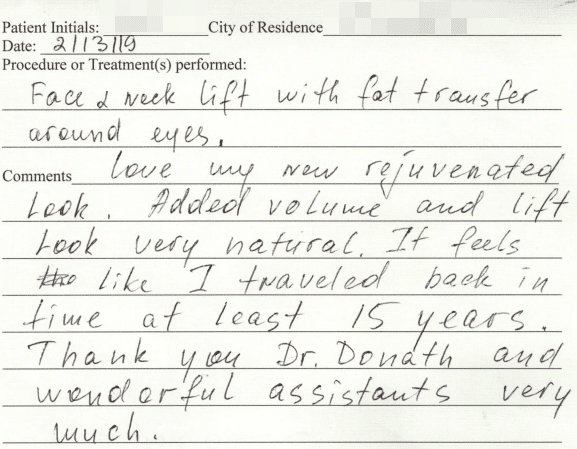 Patient Initials: City of Residence
Date: 2/13/19
Procedure or Treatment(s) performed:
Face & neck lift with fat transfer
around eyes.
Comments Love my new rejuvenated
Look. Added volume and lift
Look very natural. It feels
like I traveled back in
time at least 15 years.
Thank you Dr. Donath and
wonderful assistants very
much.